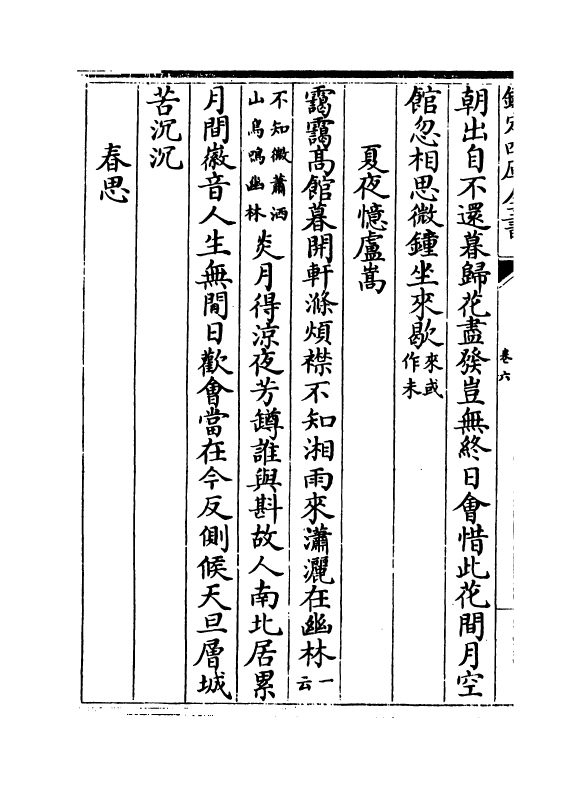 欽定四庫全書
卷六
朝出自不還暮歸花盡發豈無終日會惜此花間月空
館忽相思微鐘坐來歇來或作未
夏夜憶盧嵩
靄靄高館暮開軒滌煩襟不知湘雨來瀟灑在幽林一云
不知微蕭洒山鳥鳴幽林炎月得涼夜芳罇誰與斟故人南北居累
月間徽音人生無閒日歡會當在今反側候天旦層城
苦沉沉
春思